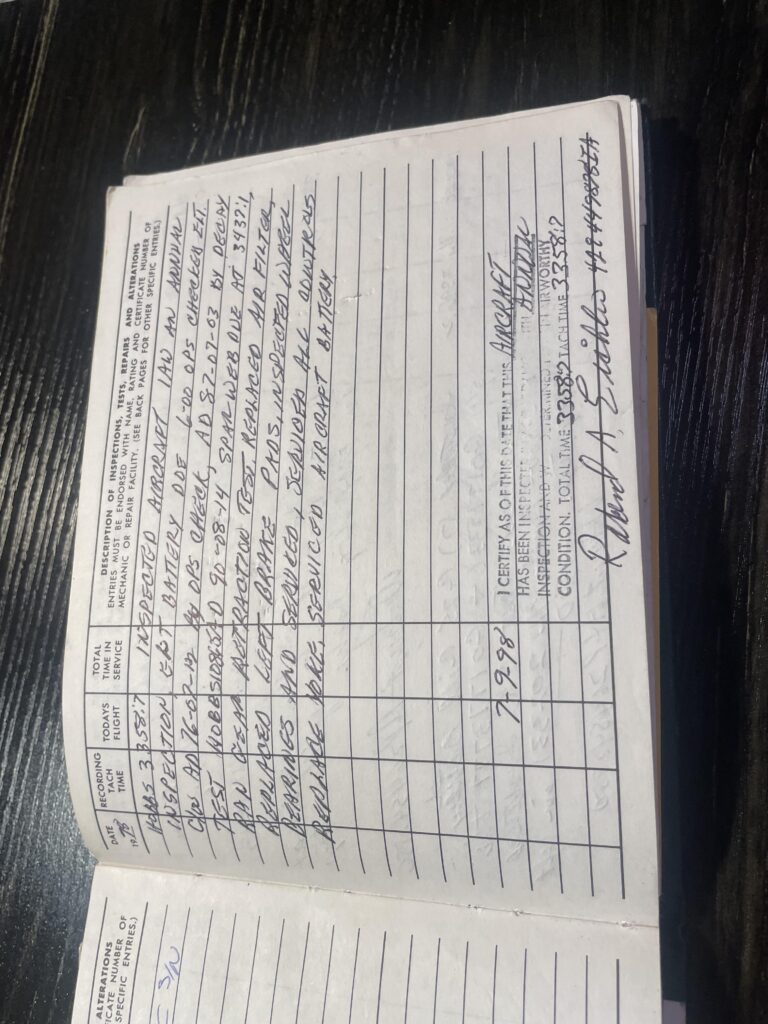 ALTERATIONS
CATE NUMBER OF
SPECIFIC ENTRIES.)
S/N
DATE
1998
RECORDING
TACH
TIME
TODAYS
FLIGHT
TOTAL
TIME IN
SERVICE
DESCRIPTION OF INSPECTIONS, TESTS, REPAIRS AND ALTERATIONS
ENTRIES MUST BE ENDORSED WITH NAME, RATING AND CERTIFICATE NUMBER OF
MECHANIC OR REPAIR FACILITY. (SEE BACK PAGES FOR OTHER SPECIFIC ENTRIES.)
HOBBS 3358.7 INSPECTED AIRCRAFT IAW AN ANNUAL
INSPECTION, BATTERY DUE 6-00 OPS CHECKED
C/W AD 76-07-12 BY OPS CHECK, AD 87-07-03 BY DECAY
TEST AD 90-08-14 SPAR WEB DUE AT
RAN GEAR RETRACTION TEST REPLACED AIR FILTER,
REPLACED LEFT BRAKE PADS, INSPECTED WHEEL
BEARINGS AND SERVICED, SERVICED ALL CONTROLS
REPLACE SERVICED AIRCRAFT BATTERY
7-9-98 I CERTIFY AS OF THIS DATE THAT THIS AIRCRAFT
HAS BEEN INSPECTED ANNUAL
INSPECTION AND AIRWORTHY
CONDITION. TOTAL TIME 3358.7 TACH TIME 3358.7
Robert A.